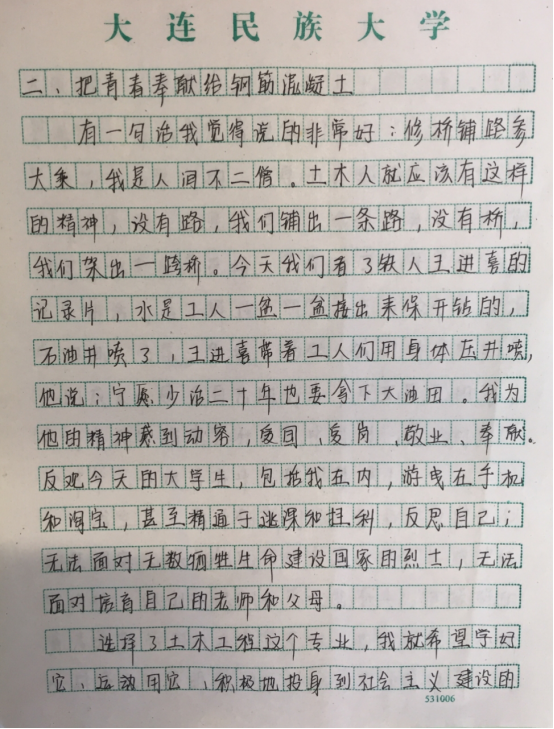 大连民族大学
二、把青春奉献给钢筋混凝土
有一句话我觉得说的非常好：修桥铺路参
大乘，我是人间不二僧。土木人就应该有这样
的精神，没有路，我们铺出一条路，没有桥，
我们架出一跨桥。今天我们看了铁人王进喜的
记录片，水是工人一盆一盆接出来保开钻的，
石油井喷了，王进喜带着工人们用身体压井喷，
他说：宁愿少活二十年也要拿下大油田。我为
他的精神感到动容，爱国、爱岗、敬业、奉献。
反观今天的大学生，包括我在内，游曳在手机
和淘宝，甚至精通于逃课和挂科，反思自己；
无法面对无数牺牲生命建设国家的烈士，无法
面对培育自己的老师和父母。
选择了土木工程这个专业，我就希望学好
它、运用它、积极地投身到社会主义建设的
531006